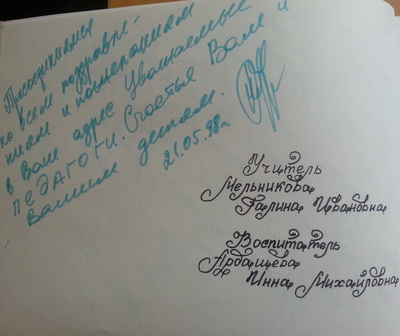 Присоединяемся
ко всем поздравле-
ниям и пожеланиям
в Ваш адрес Уважаемые
ПЕДАГОГИ. Счастья Вам и
Вашим детям.
21.05.98г.
Учитель
Мельникова
Галина Ивановна
Воспитатель
Ардащева
Инна Михайловна